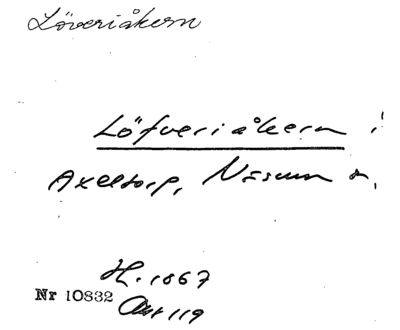 Löveriåkern
Löfveriåkern i
Axeltorp, Näsum s.
H. 1867
Nr 10832
Akt 119